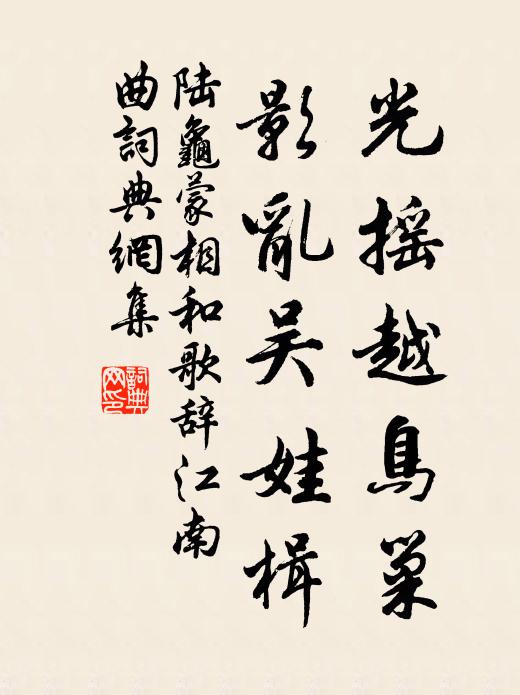 光摇越鳥巢
影亂吴娃楫
陆龜蒙相和歌辞江南
曲詞典網集
詞典網印